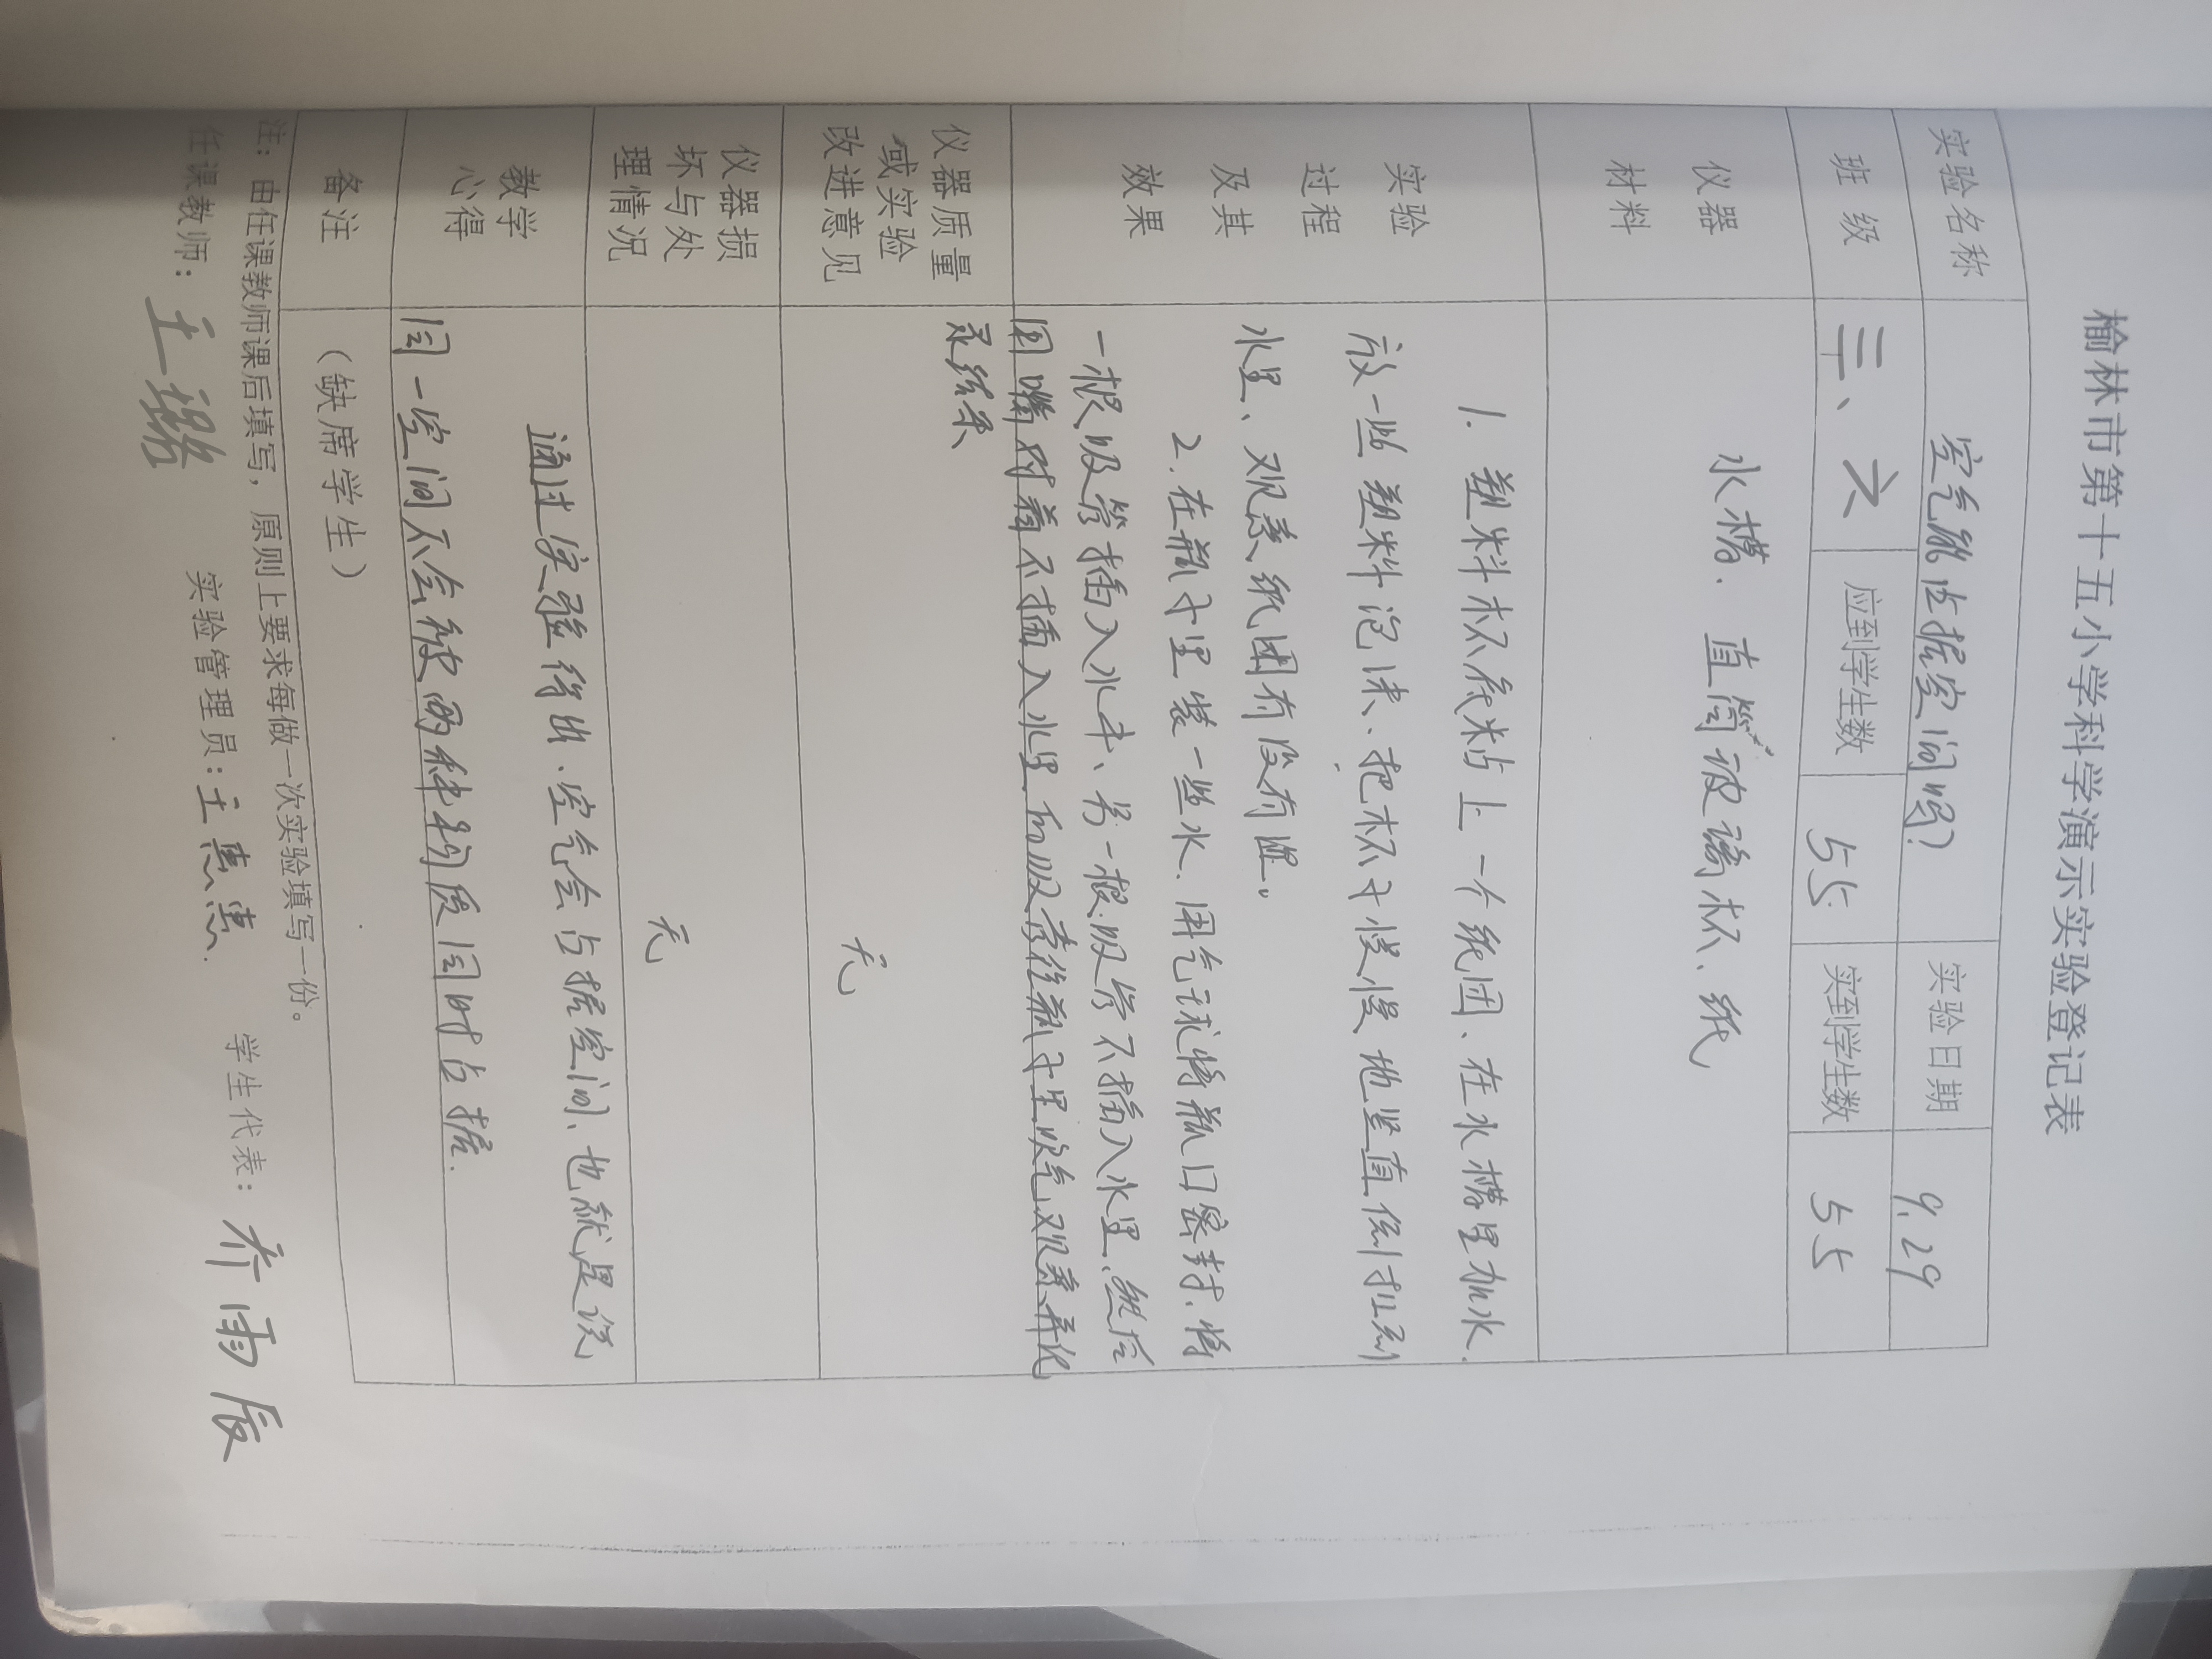 榆林市第十五小学科学演示实验登记表
实验名称 空气能占据空间吗? 实验日期 9.29
班 级 三、六 应到学生数 55 实到学生数 55
仪器
材料
水槽. 直筒玻璃杯、纸
实验
过程
及其
效果
1. 塑料杯底粘上一个纸团、在水槽里加水.
放一些塑料泡沫、把杯子慢慢地竖直倒扣到
水里、观察纸团有没有湿。
2. 在瓶子里装一些水. 用气球将瓶口密封、将
一根吸管插入水中、另一根吸管不插入水里、然后
用嘴对着不插入水里的吸管往瓶子里吹气观察并
仪器质量
或实验
改进意见
无
仪器损
坏与处
理情况
无
教学
心得
通过实验得出、空气会占据空间、也就是说
同一空间不会被两种物质同时占据.
备注
(缺席学生)
注:由任课教师课后填写,原则上要求每做一次实验填写一份。
任课教师: 王璐 实验管理员:王惠惠. 学生代表: 乔雨辰